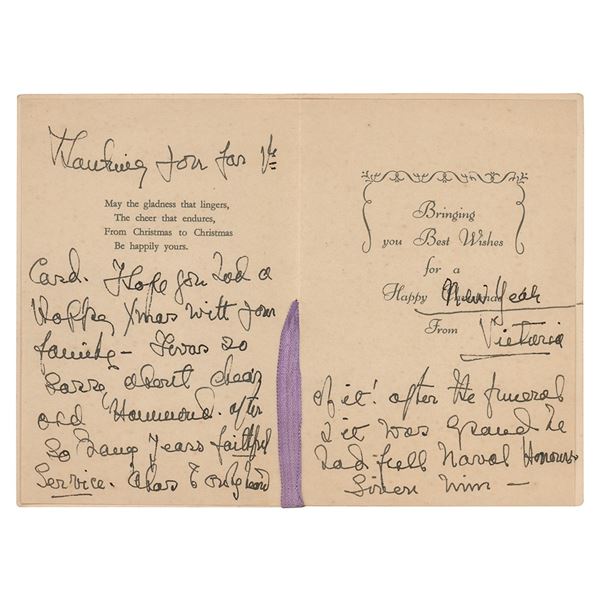 Thanking you for the
May the gladness that lingers,
The cheer that endures,
From Christmas to Christmas
Be happily yours.
Card. I hope you had a
Happy Xmas with your
family – I was so
sorry about dear
old Hammond. after
so many years faithful
Service. alas I only heard
Bringing
you Best Wishes
for a
Happy New Year
From Victoria
of it! after the funeral
& it was grand he
had full Naval Honours
Given him –